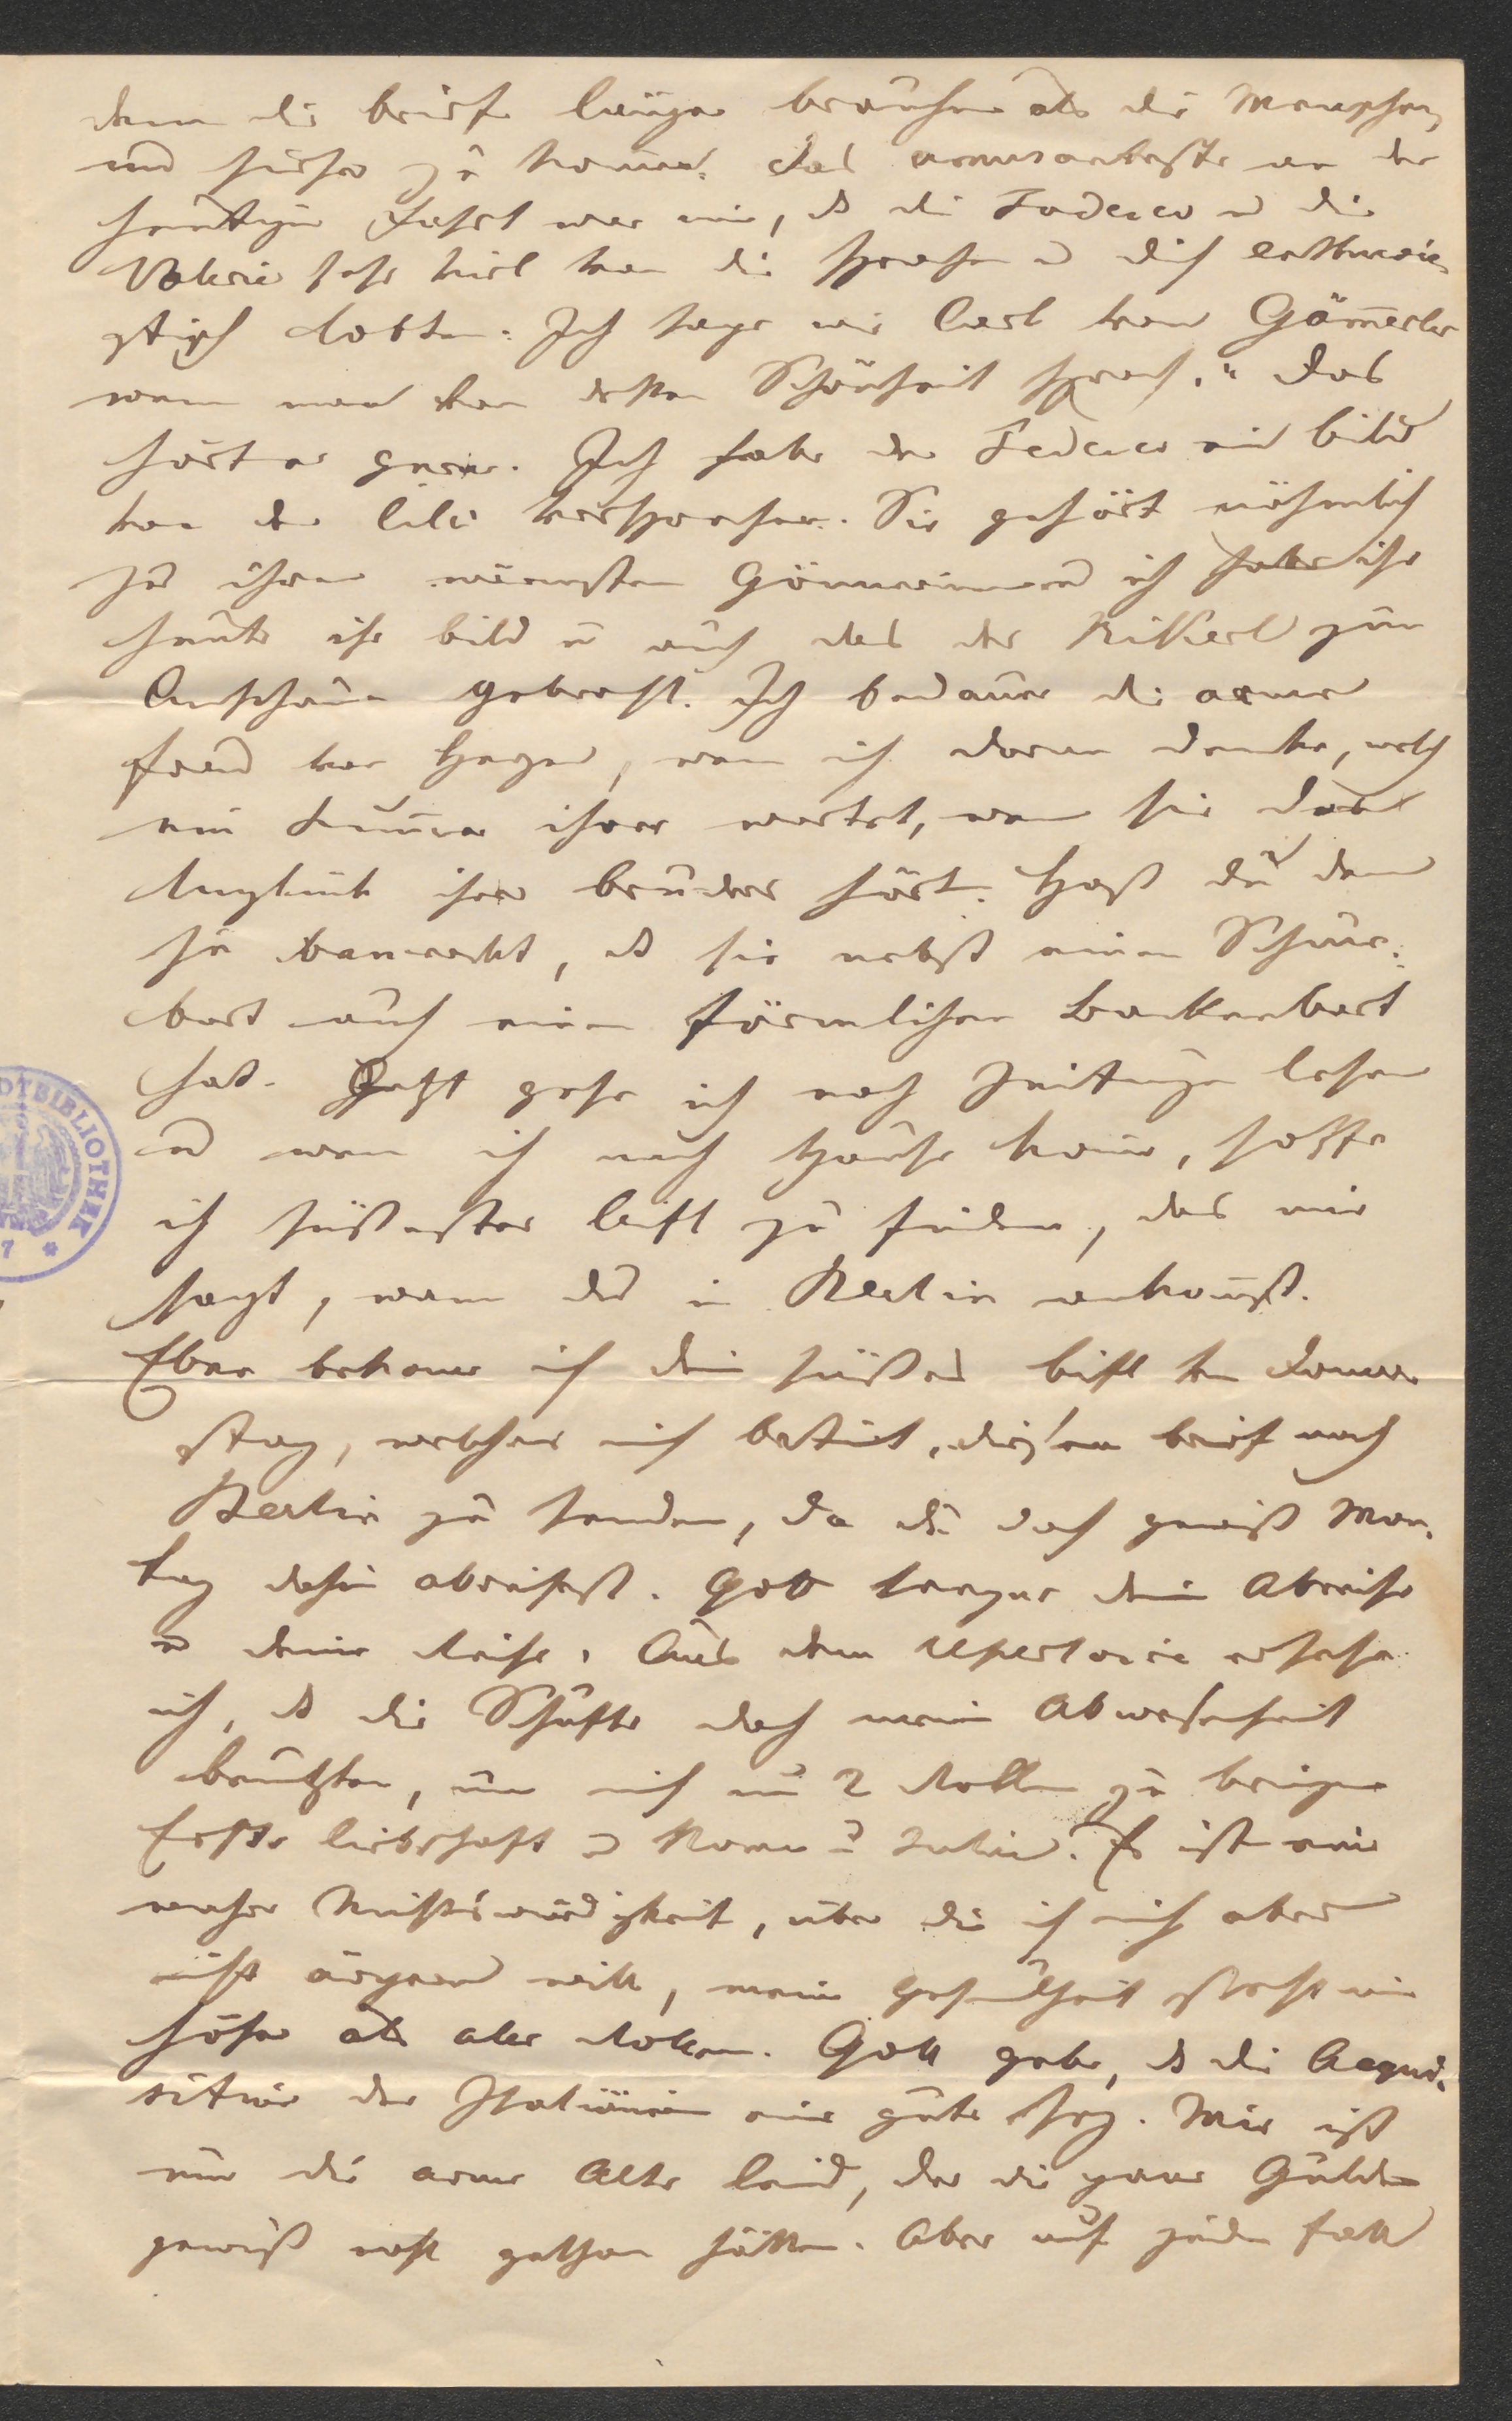 denn die briefe länger brauchen als die Menschen
um hieher zu kommen. Das amusanteste an der
heutigen Fahrt war mir, ds die Federico u die
Valerie sehr viel von dir sprachen u dich enthusia-
stisch lobten. Ich sage wie Carl von Gämerler
wenn man von dessen Schönheit sprach: " das
hört er gern. Ich habe der Federico ein bild
von der lili versprochen. Sie gehört nähmlich
zu ihren wärmsten Gönnerinnen ich habe ihr
heute ihr bild u auch das der Kikerl zum
Anschauen gebracht. Ich bedaure die arme
frau von Hagen, wenn ich daran denke, welch
ein Kummer ihrer wartet, wenn sie das
Unglück ihres bruders hört. Hast du den
je bemerkt, ds sie nebst einem Schnur-
bart auch einen förmlichen Backenbart
hat. Jetzt gehe ich noch Zeitungen lesen
u wenn ich nach Hause komme, hoffe
ich süßester zu finden, das mir
sagt, wann du in Berlin ankommst.
Eben bekomme ich dein süßes von Donner-
stag, welches mich bestimmt, diesen brief nach
Berlin zu senden, da du doch gewiß Mon-
tag dahin abreisest. Gott seegne deine Abreise
u deine Reise. Aus dem Repertoire ersehe
ich, ds die Schufte doch meine Abwesenheit
benützten, um mich um 2 Rollen zu bringen
Erste liebschaft u Romeo u Julie. Es ist eine
wahre Nichtswürdigkeit, über die ich mich aber
nicht ärgern will, meine Gesundheit steht mir
höher als alle Rollen. Gott gebe, ds die Acqui-
sition der Italiänerin eine gute sey. Mir ist
nur die arme Alte leid, der die paar Gulden
gewiß wohl gethan hätten. Aber auf jeden fall
STADTBIBLIOTHEK